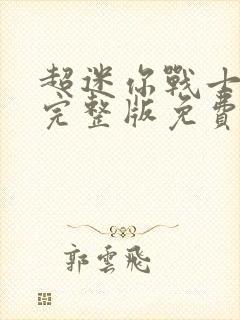 超迷你戰士
完整版免費
郭雲飛